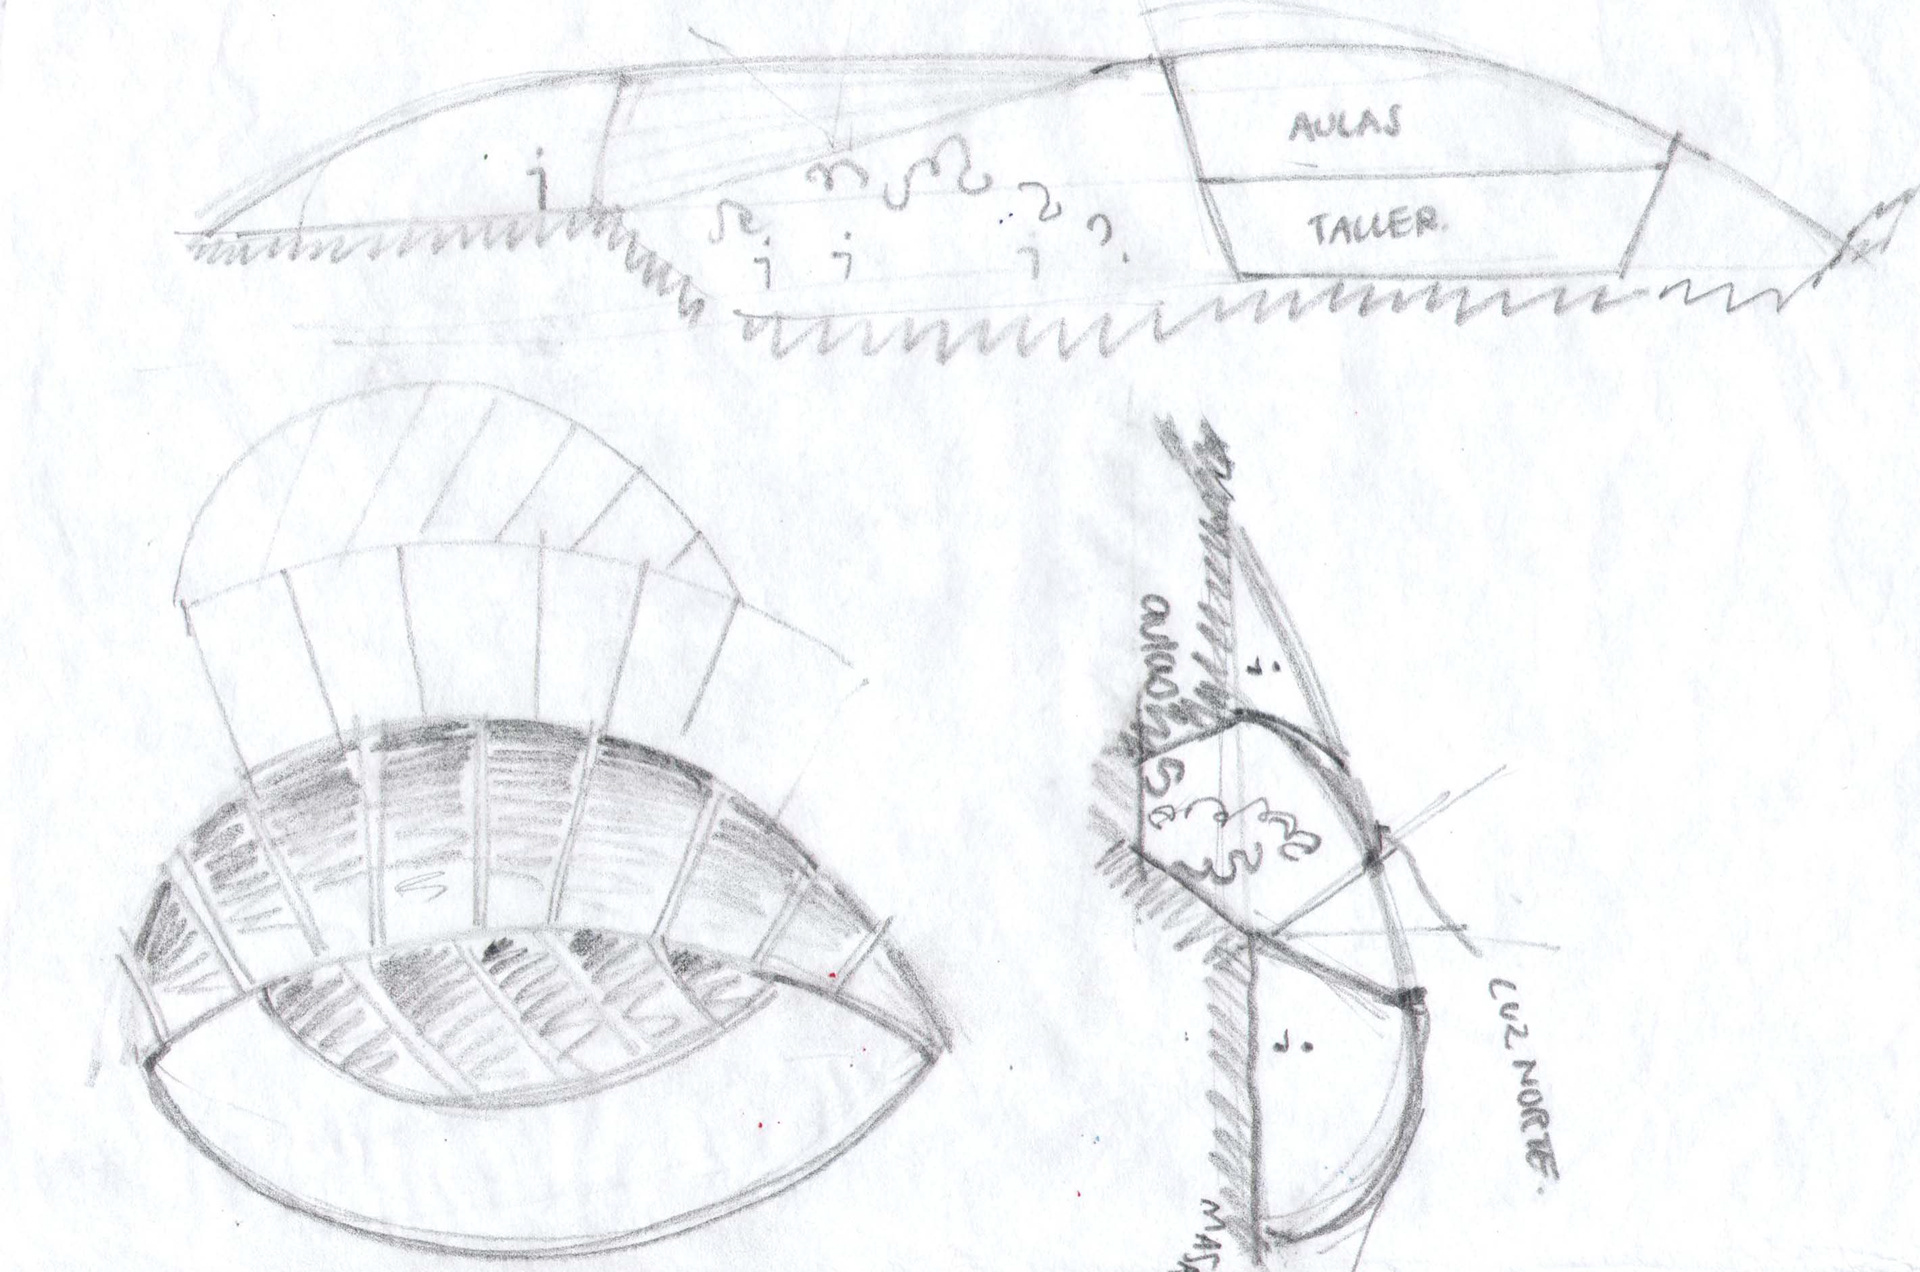 AULAS
TALLER.
aulas
LUZ NORTE.